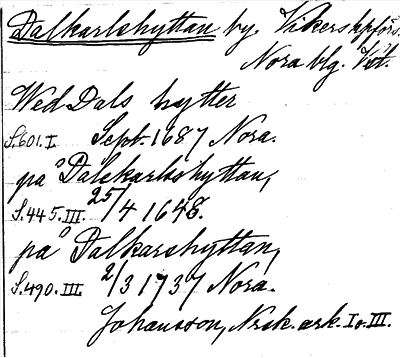 Dalkarlshyttan by. Vikers kpförs.
Nora blg. Vst.
Wed Dals hytter
S.601.I. Sept. 1687 Nora.
på Dalekarlshyttan,
S.445.III. 25/4 1648.
på Dalkarshyttan,
S.490.III 2/3 1737 Nora.
Johansson, Nrsk. ark. I o. III.